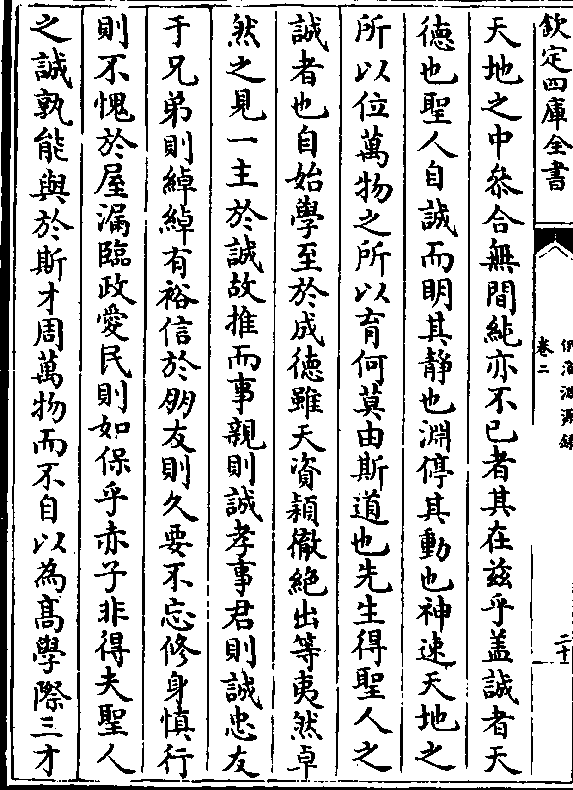 欽定四庫全書
伊洛淵源録
卷二
二十
天地之中叅合無間純亦不已者其在兹乎盖誠者天
德也聖人自誠而明其静也淵停其動也神速天地之
所以位萬物之所以育何莫由斯道也先生得聖人之
誠者也自始學至於成德雖天資頴徹絶出等夷然卓
然之見一主於誠故推而事親則誠孝事君則誠忠友
于兄弟則綽綽有裕信於朋友則久要不忘修身慎行
則不愧於屋漏臨政愛民則如保乎赤子非得夫聖人
之誠孰能與於斯才周萬物而不自以為髙學際三才